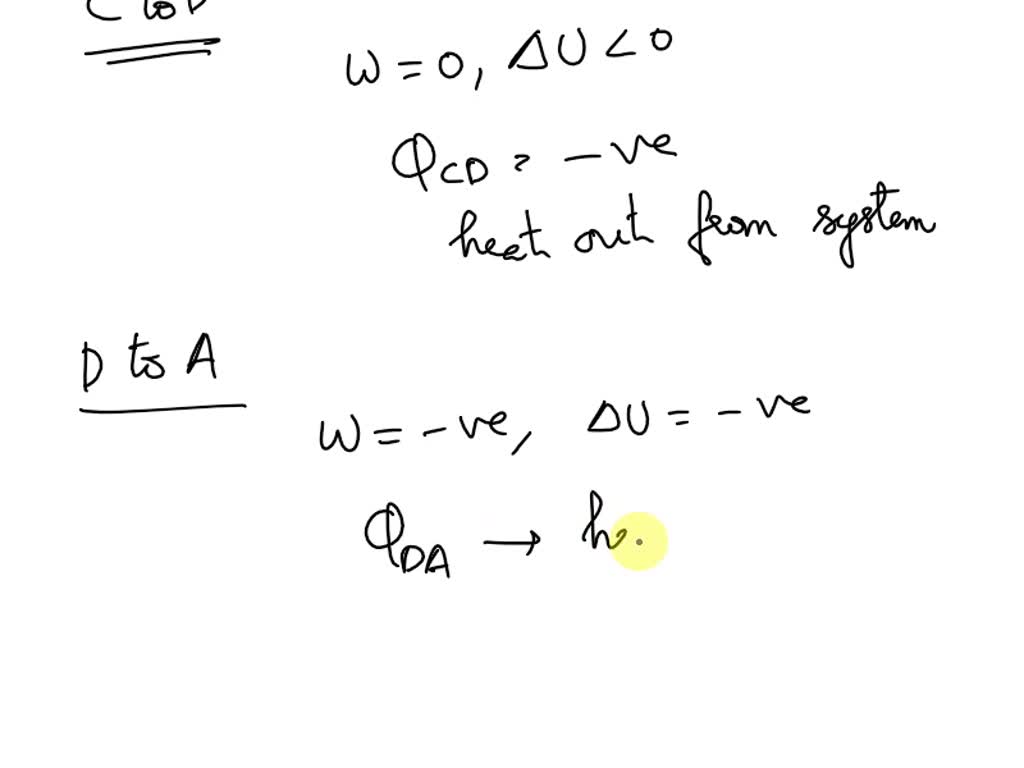 C to D
W = 0, ΔU < 0
Q_CD = -ve
heat out from system
D to A
W = -ve, ΔU = -ve
Q_DA → h